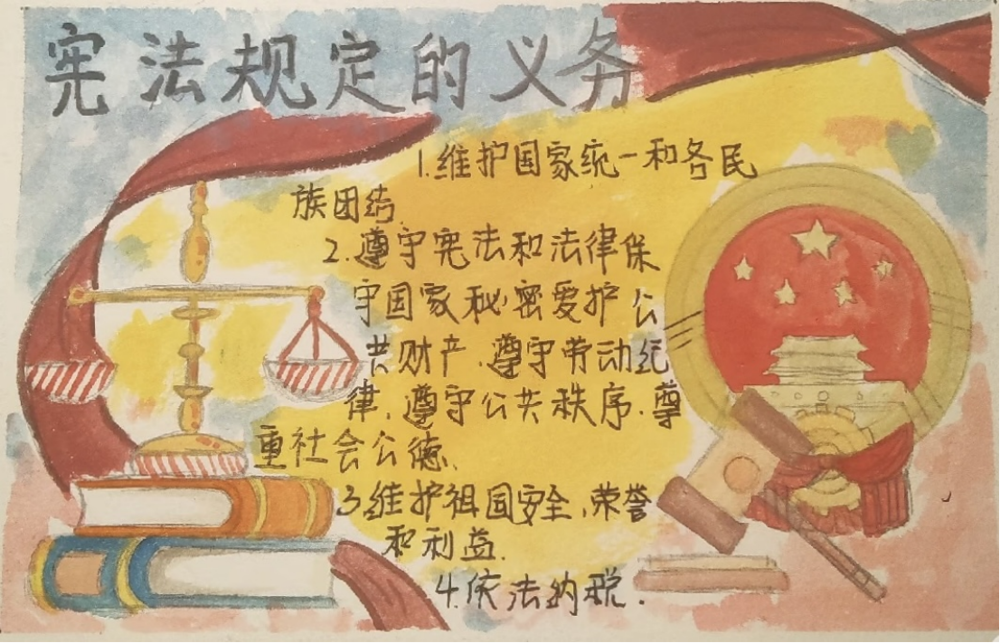 宪法规定的义务
1.维护国家统一和各民
族团结.
2.遵守宪法和法律保
守国家秘密爱护公
共财产.遵守劳动纪
律.遵守公共秩序.尊
重社会公德.
3.维护祖国安全.荣誉
和利益.
4.依法纳税.